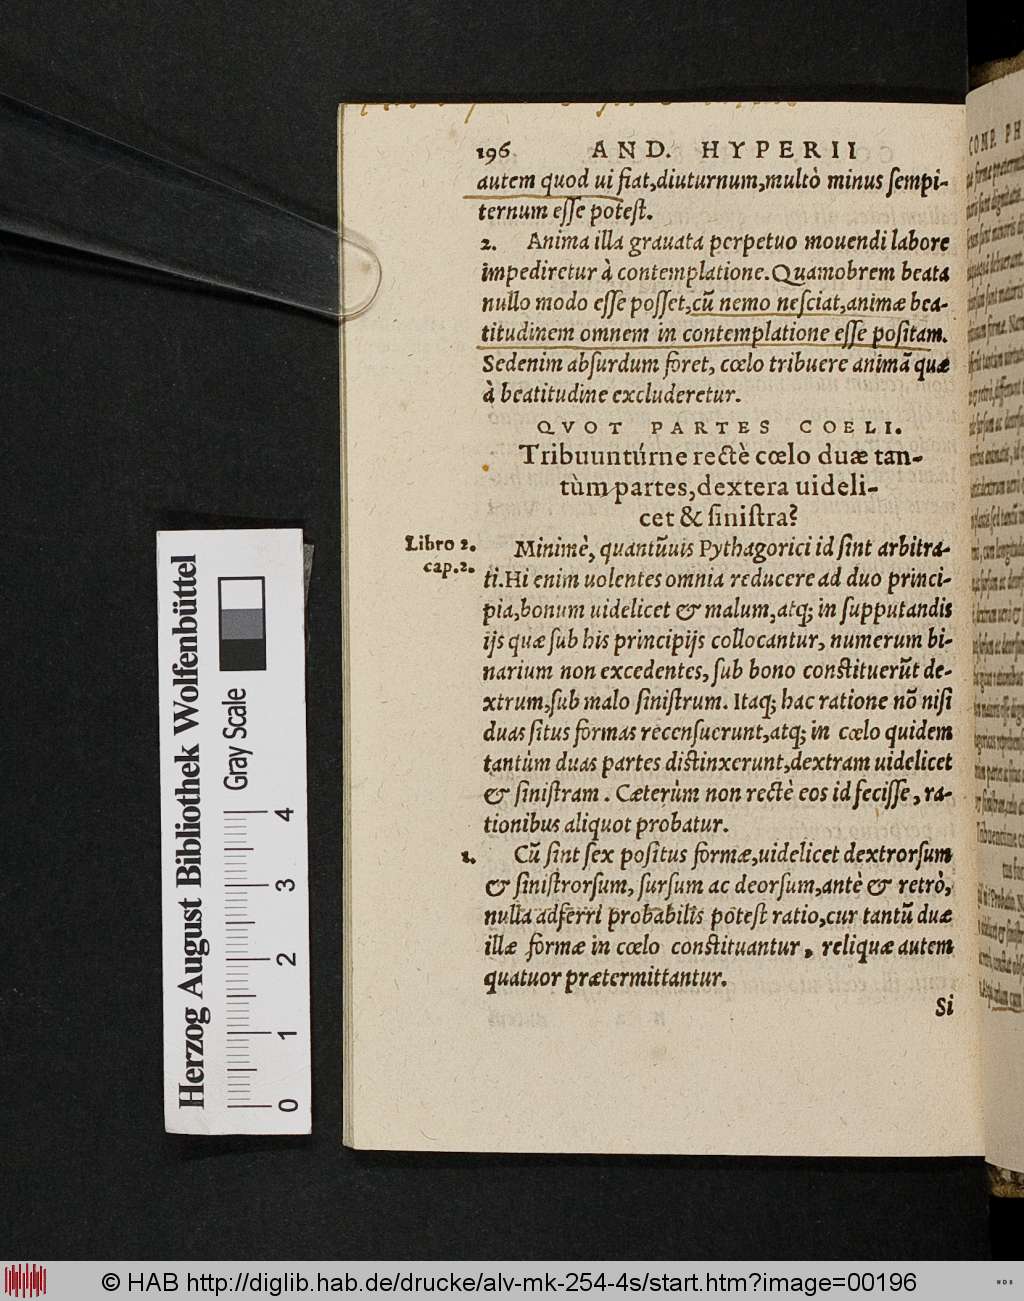 196 AND. HYPERII
autem quod ui fiat,diuturnum,multò minus ſempi-
ternum eſſe poteſt.
2. Anima illa grauata perpetuo mouendi labore
impediretur à contemplatione.Quamobrem beata
nullo modo eſſe poſſet,cū nemo neſciat,animæ bea-
titudinem omnem in contemplatione eſſe poſitam.
Sedenim abſurdum foret, cœlo tribuere animā quæ
à beatitudine excluderetur.
QVOT PARTES COELI.
Tribuuntúrne rectè cœlo duæ tan-
tùm partes,dextera uideli-
cet & ſiniſtra?
Libro 2.
cap.2.
Minimè, quantũuis Pythagorici id ſint arbitra-
ti.Hi enim uolentes omnia reducere ad duo princi-
pia,bonum uidelicet & malum,atq; in ſupputandis
ijs quæ ſub his principijs collocantur, numerum bi-
narium non excedentes, ſub bono conſtituerũt de-
xtrum,ſub malo ſiniſtrum. Itaq; hac ratione nõ niſi
duas ſitus formas recenſuerunt,atq; in cœlo quidem
tantùm duas partes diſtinxerunt,dextram uidelicet
& ſiniſtram. Cæterùm non rectè eos id feciſſe, ra-
tionibus aliquot probatur.
1. Cũ ſint ſex poſitus formæ,uidelicet dextrorſum
& ſiniſtrorſum, ſurſum ac deorſum,antè & retrò,
nulla adferri probabilis poteſt ratio,cur tantũ duæ
illæ formæ in cœlo conſtituantur, reliquæ autem
quatuor prætermittantur.
Si
COMP. PH
Herzog August Bibliothek Wolfenbüttel
Gray Scale
0 1 2 3 4
© HAB http://diglib.hab.de/drucke/alv-mk-254-4s/start.htm?image=00196